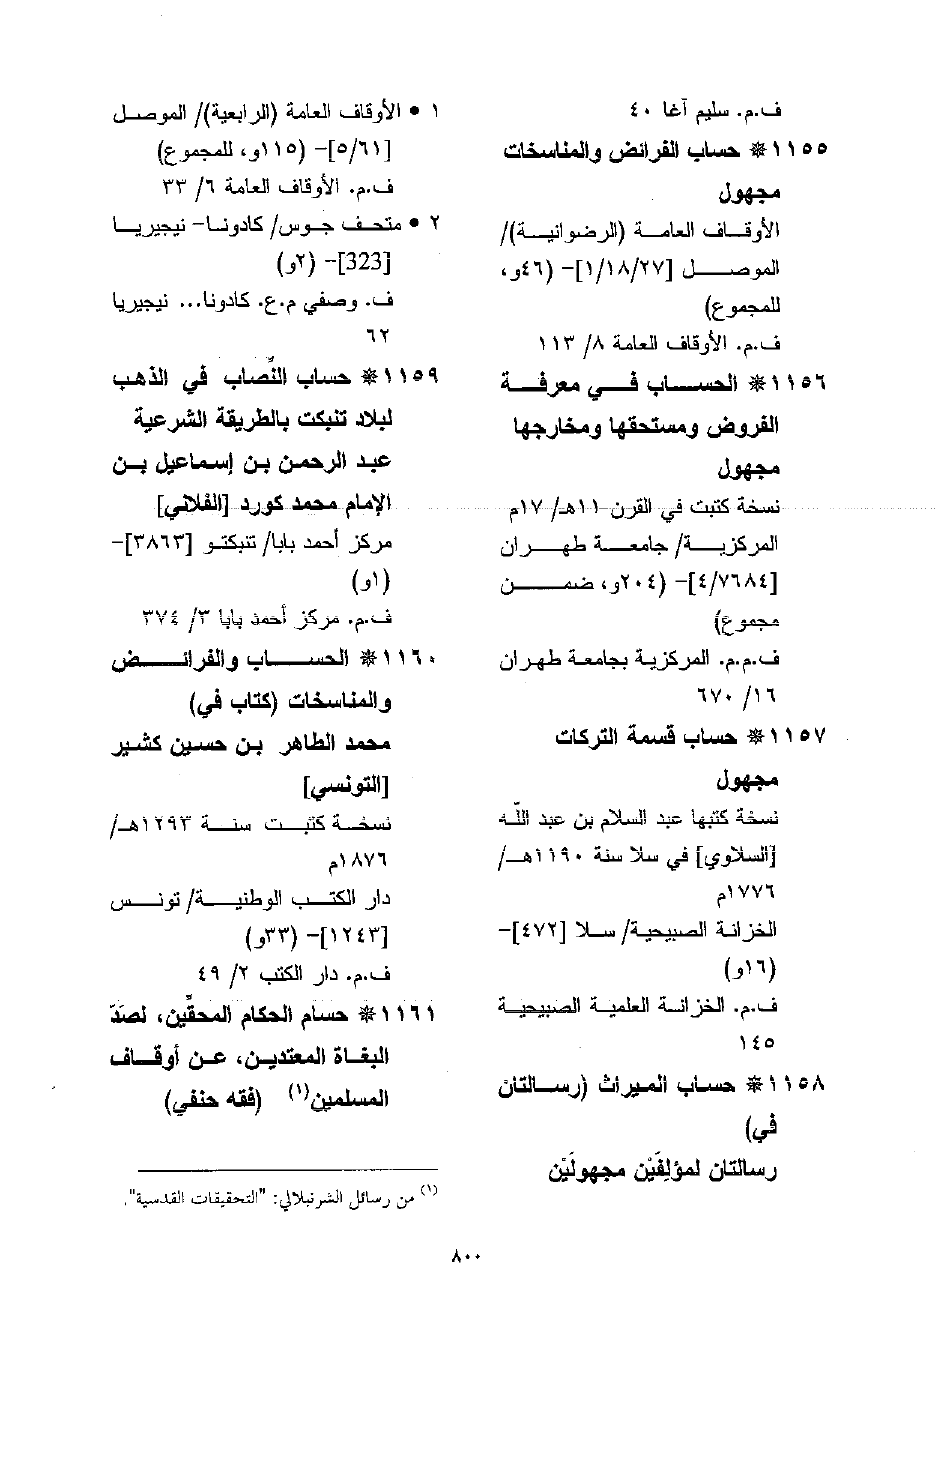 ف.م. سليم آغا ٤٠
١١٥٥* حساب الفرائض والمناسخات
مجهول
الأوقاف العامة (الرضوانية)/
الموصل [١/١٨/٢٧]- (٤٦و،
للمجموع)
ف.م. الأوقاف العامة ٨/ ١١٣
١١٥٦* الحساب في معرفة
الفروض ومستحقها ومخارجها
مجهول
نسخة كتبت في القرن ١١هـ/ ١٧م
المركزية/ جامعة طهران
[٤/٧٦٨٤]- (٢٠٤و، ضمن
مجموع)
ف.م.م. المركزية بجامعة طهران
١٦/ ٦٧٠
١١٥٧* حساب قسمة التركات
مجهول
نسخة كتبها عبد السلام بن عبد اللّه
[السلاوي] في سلا سنة ١١٩٠هـ/
١٧٧٦م
الخزانة الصبيحية/ سلا [٤٧٢]-
(١٦و)
ف.م. الخزانة العلمية الصبيحية
١٤٥
١١٥٨* حساب الميراث (رسالتان
في)
رسالتان لمؤلِفَيْن مجهولَيْن
١ • الأوقاف العامة (الرابعية)/ الموصل
[٥/٦١]- (١١٥و، للمجموع)
ف.م. الأوقاف العامة ٦/ ٣٣
٢ • متحف جوس/ كادونا- نيجيريا
[323]- (٢و)
ف. وصفي م.ع. كادونا... نيجيريا
٦٢
١١٥٩* حساب النِّصاب في الذهب
لبلاد تنبكت بالطريقة الشرعية
عبد الرحمن بن إسماعيل بن
الإمام محمد كورد [الفلاني]
مركز أحمد بابا/ تنبكتو [٣٨٦٣]-
(١و)
ف.م. مركز أحمد بابا ٣/ ٣٧٤
١١٦٠* الحساب والفرائض
والمناسخات (كتاب في)
محمد الطاهر بن حسين كشير
[التونسي]
نسخة كتبت سنة ١٢٩٣هـ/
١٨٧٦م
دار الكتب الوطنية/ تونس
[١٢٤٣]- (٣٣و)
ف.م. دار الكتب ٢/ ٤٩
١١٦١* حسام الحكام المحقِّين، لصَدّ
البغاة المعتدين، عن أوقاف
المسلمين(١) (فقه حنفي)
(١) من رسائل الشرنبلالي: "التحقيقات القدسية".
٨٠٠